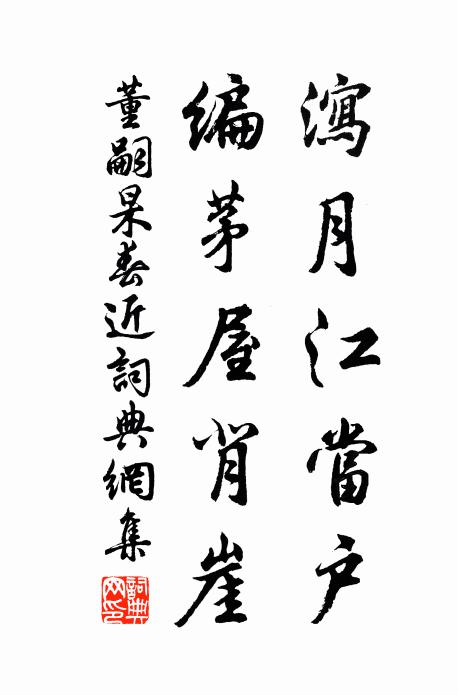 瀉月江當戶
編茅屋背崖
董嗣杲春近詞典網集
詞典網印